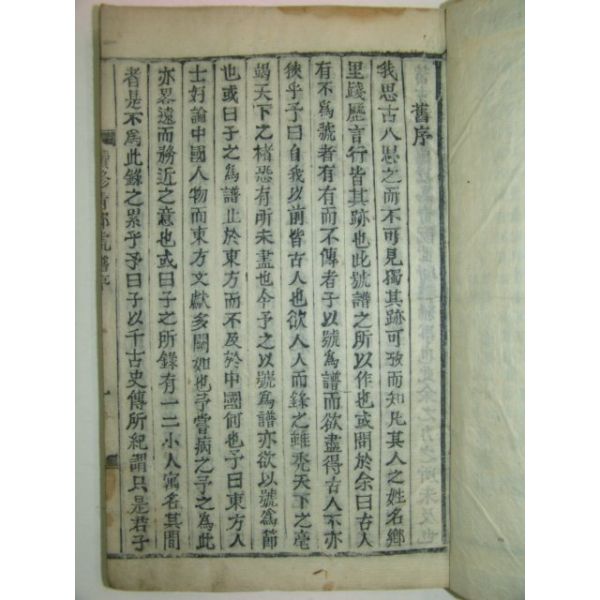 舊序
我思古人思之而不可見獨其跡可攷而知凡其人之姓名鄉
里踐歷言行皆其跡也此號譜之所以作也或問於余曰古人
有不爲號者有有而不傳者子以號爲譜而欲盡得古人不亦
狹乎予曰自我以前皆古人也欲人人而錄之雖禿天下之毫
竭天下之楮恐有所未盡也今予之以號爲譜亦欲以號爲節
也或曰子之爲譜止於東方而不及於中國何也予曰東方人
士好論中國人物而東方文獻多闕如也予嘗病之予之爲此
亦畧遠而務近之意也或曰子之所錄有一二小人寓名其間
者是不爲此錄之累乎予曰子以千古史傳所紀謂只是君子
譜序